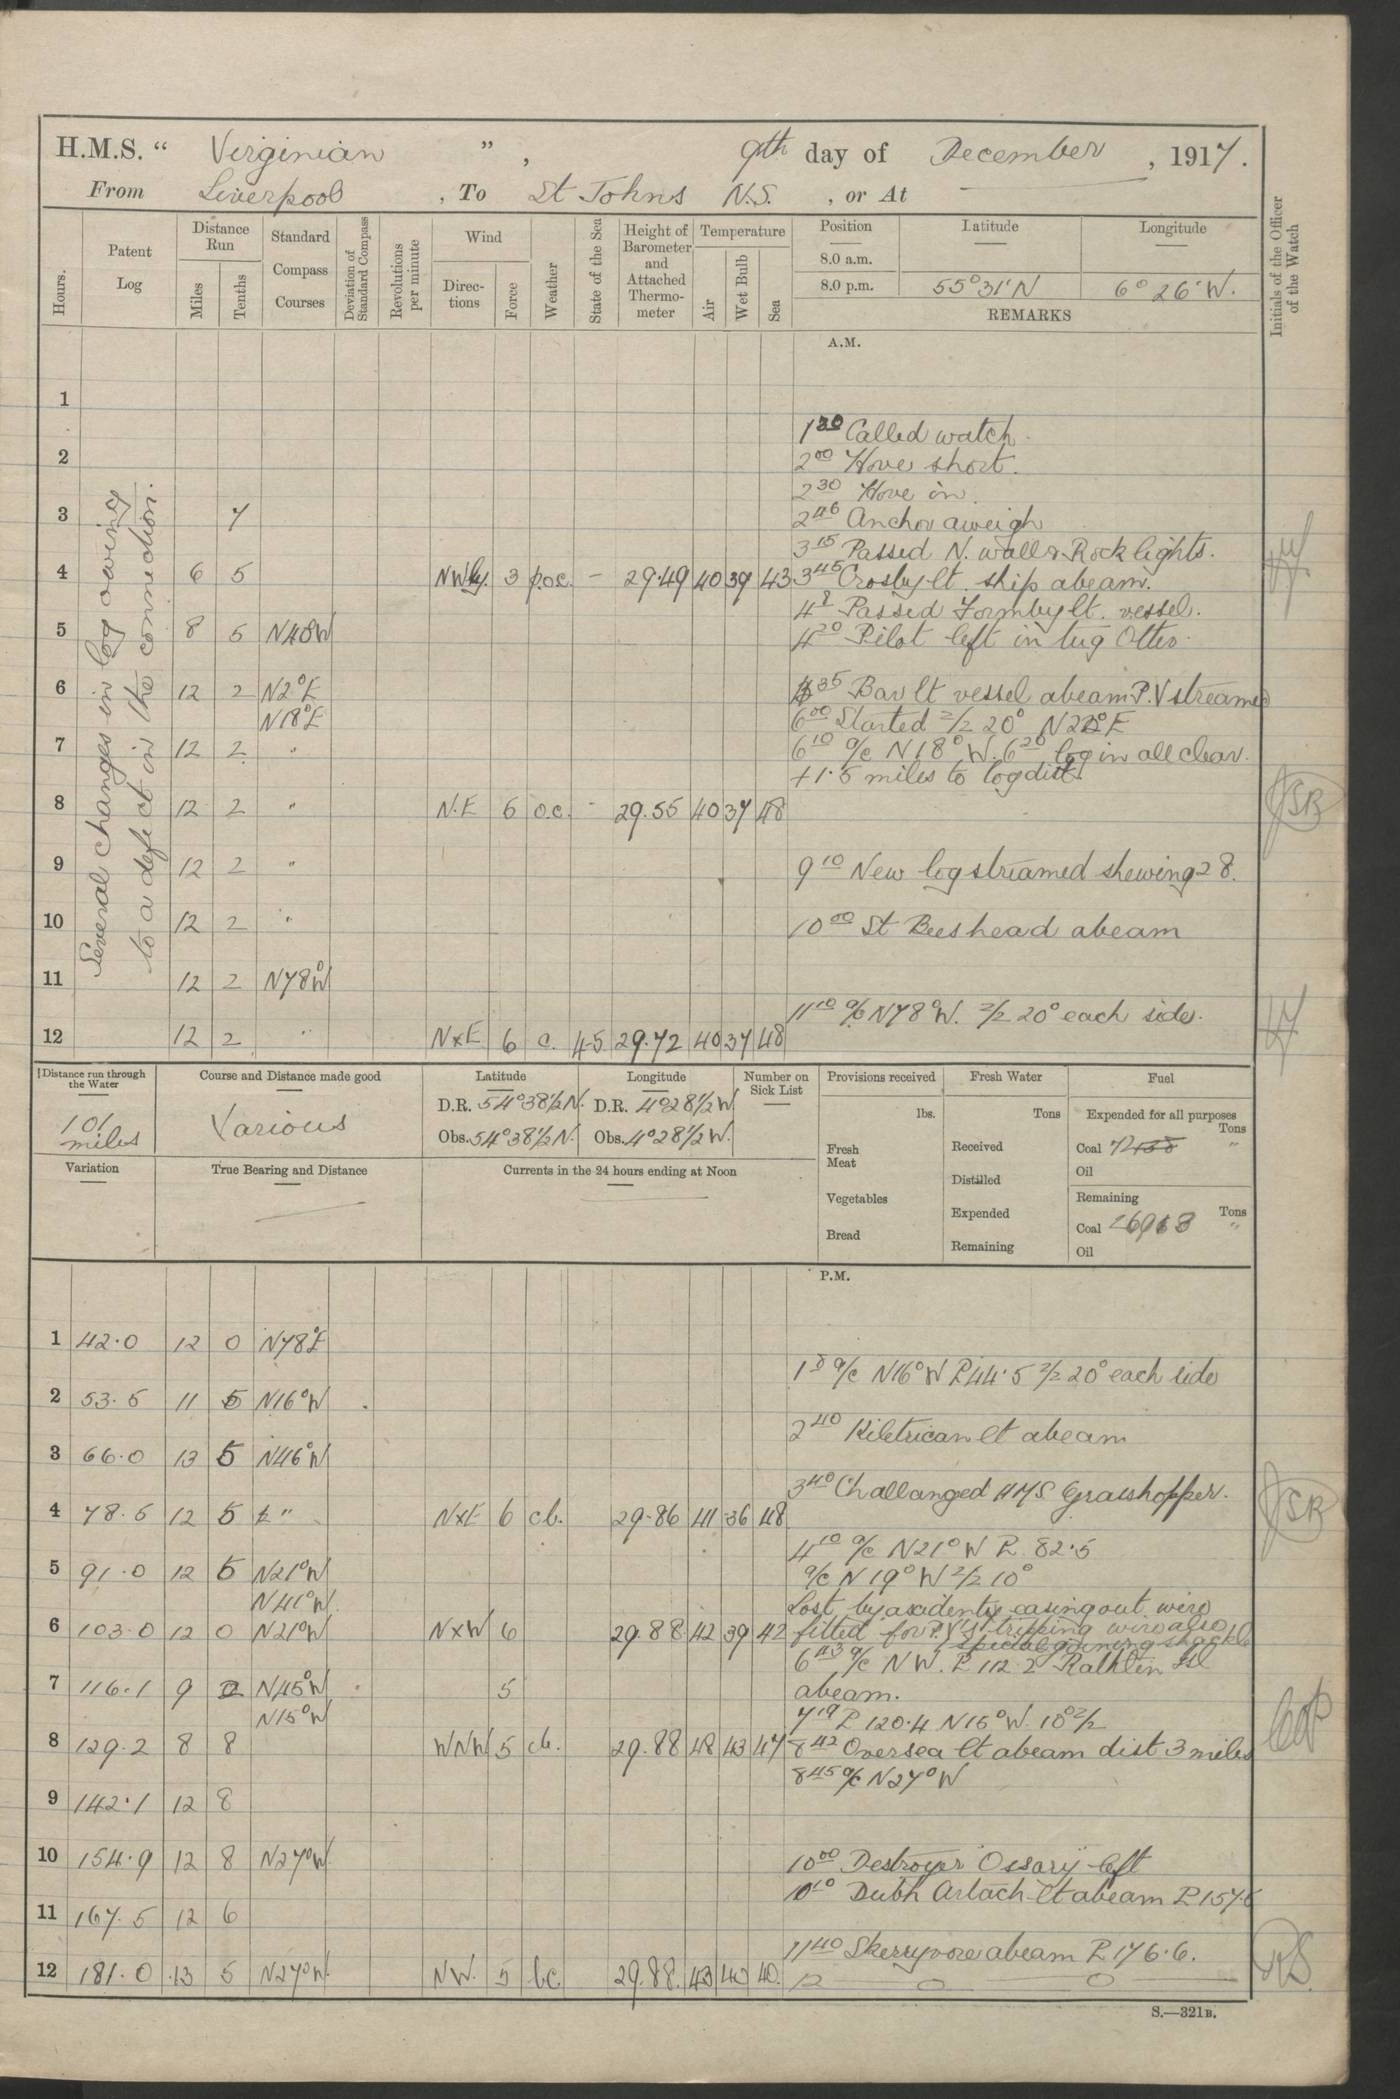 H.M.S. “ Virginian ” , 9th day of December , 1917.
From Liverpool , To St Johns N.S. , or At —
Hours. Patent Log Distance Run Miles Tenths Standard Compass Courses Deviation of Standard Compass Revolutions per minute Wind Directions Force Weather State of the Sea Height of Barometer and Attached Thermometer Temperature Air Wet Bulb Sea Position Latitude Longitude Initials of the Officer of the Watch
8.0 a.m.
8.0 p.m. 55°31'N 6°26'W.
REMARKS
A.M.
Several changes in log owing
to a defect in the connection.
1
1 30 Called watch.
2 2 00 Hove short.
2 30 Hove in.
3 7 2 46 Anchor aweigh
3 15 Passed N. wall & Rock lights.
4 6 5 NWly. 3 p.oc. - 29.49 40 39 43 3 45 Crosby lt. ship abeam.
4 8 Passed Formby lt. vessel.
5 8 5 N48W 4 20 Pilot left in tug Otter.
6 12 2 N2°E 4 35 Bar lt vessel abeam P.V streamed
N18°E 6 00 Started Z/Z 20° N22°E
7 12 2 " 6 10 a/c N18°W. 6 20 log in all clear.
+1.5 miles to log dist.
8 12 2 " N.E 6 o.c. - 29.55 40 37 48
9 12 2 " 9 10 New log streamed shewing 28.
10 12 2 " 10 00 St Bees head abeam
11 12 2 N78°W
11 10 a/c N78°W. Z/Z 20° each side.
12 12 2 " NxE 6 c. 45 29.72 40 37 48
Distance run through the Water Course and Distance made good Latitude Longitude Number on Sick List Provisions received Fresh Water Fuel
101 miles Various D.R. 54°38½N. D.R. 4°28½W. lbs. Tons Expended for all purposes Tons
Obs. 54°38½N. Obs. 4°28½W. Fresh Meat Received Coal "
Variation True Bearing and Distance Currents in the 24 hours ending at Noon Distilled Oil
Vegetables Expended Remaining Tons
Bread Remaining Coal "
Oil
P.M.
1 42.0 12 0 N78°E
1 8 a/c N16°W P.44.5 Z/Z 20° each side
2 53.5 11 5 N16°W
2 40 Kiletrican lt abeam
3 66.0 13 5 N46°W
3 40 Challanged HMS Grasshopper.
4 78.5 12 5 " NxE 6 cb. 29.86 41 36 48
4 10 a/c N21°W P. 82.5
5 91.0 12 5 N21°W a/c N19°W Z/Z 10°
N41°W Lost by accident easing out wire
6 103.0 12 0 N21°W NxW 6 29.88 42 39 42 fitted for P.V's tripping wire also
special joining shackle
6 43 a/c NW. P.112.2 Rathlin Isl
7 116.1 9 N45°W 5 abeam.
N15°W 7 19 P 120.4 N15°W 10° Z/Z
8 129.2 8 8 WNW 5 cb. 29.88 48 43 47 8 42 Oversea lt abeam dist 3 miles
8 45 a/c N27°W
9 142.1 12 8
10 154.9 12 8 N27°W 10 00 Destroyer Ossary left
10 10 Dubh Artach lt abeam P.157.6
11 167.5 12 6
11 40 Skerryvore abeam P.176.6.
12 181.0 13 5 N27°W NW. 5 bc. 29.88. 43 40 40. 12 — 0 — 0 —
S.—321B.